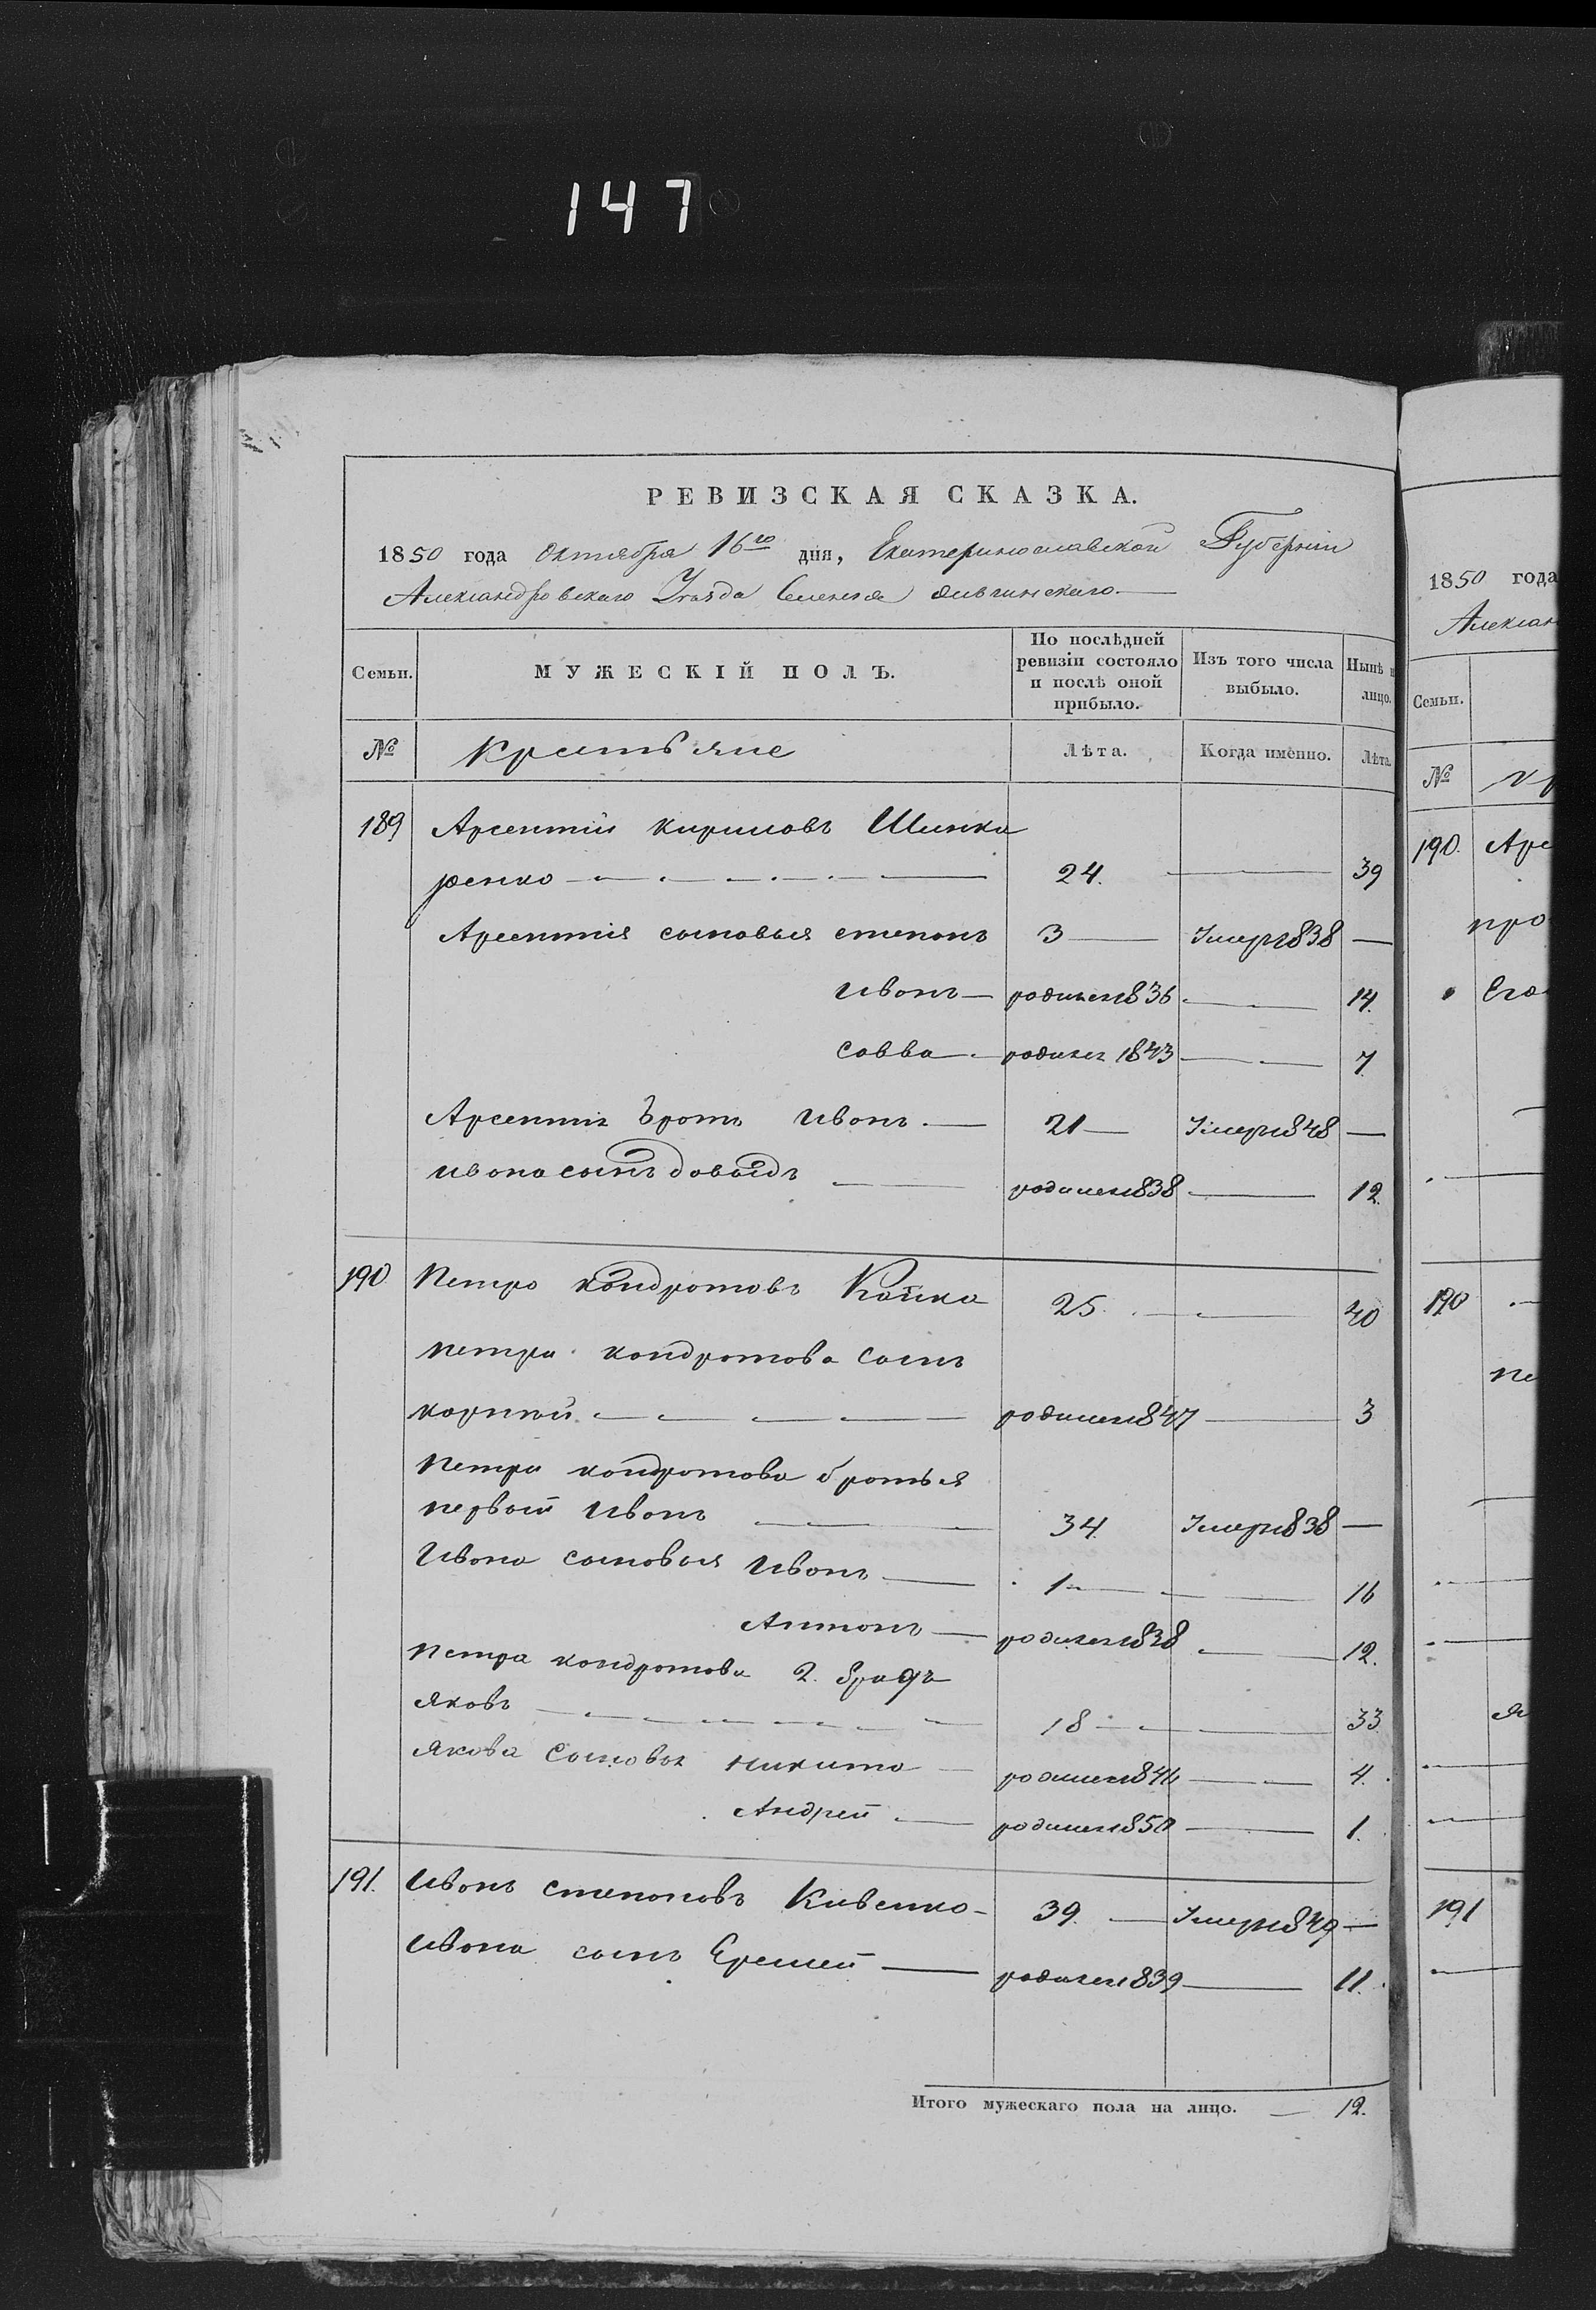 147
РЕВИЗСКАЯ СКАЗКА.
1850 года Октября 16го дня, Екатеринославской Губернии
Александровскаго Уезда Селения
Семьи. МУЖЕСКІЙ ПОЛЪ. По послѣдней ревизіи состояло и послѣ оной прибыло. Изъ того числа выбыло. Нынѣ н лицо.
№ Крестьяне Лѣта. Когда именно. Лѣта.
189 Арсентий Кириловъ Шинка
ренко 24. 39
Арсентия сыновья степонъ 3 Умерг1838
Ивонъ родилсег1836 14.
Савва родилсег 1843 7
Арсентия братъ Ивонъ 21 Умерг1848
ивона сынъ довыдъ родилсег1838 12.
190 Петро Кондротовъ Кайка 25. 40
петра кондротова сынъ
корний родилсег1847 3
Петра кондротова бротья
первый Ивонъ 34 Умерг1838
Ивона сыновья Ивонъ 1 16
Антонъ родилсег1838 12.
Петра кондротова 2. братъ
Яковъ 18 33
Якова Сыновья никита родилсег1846 4.
Андрей родилсег1850 1.
191. Ивонъ степоновъ Кивенко 39. Умерг1849
Ивона сынъ Еремей родилсег1839 11.
Итого мужескаго пола на лицо. 12.
1850 года
Алексан
Семьи.
№ кр
190. Арс
про
Его
190
пе
я
191